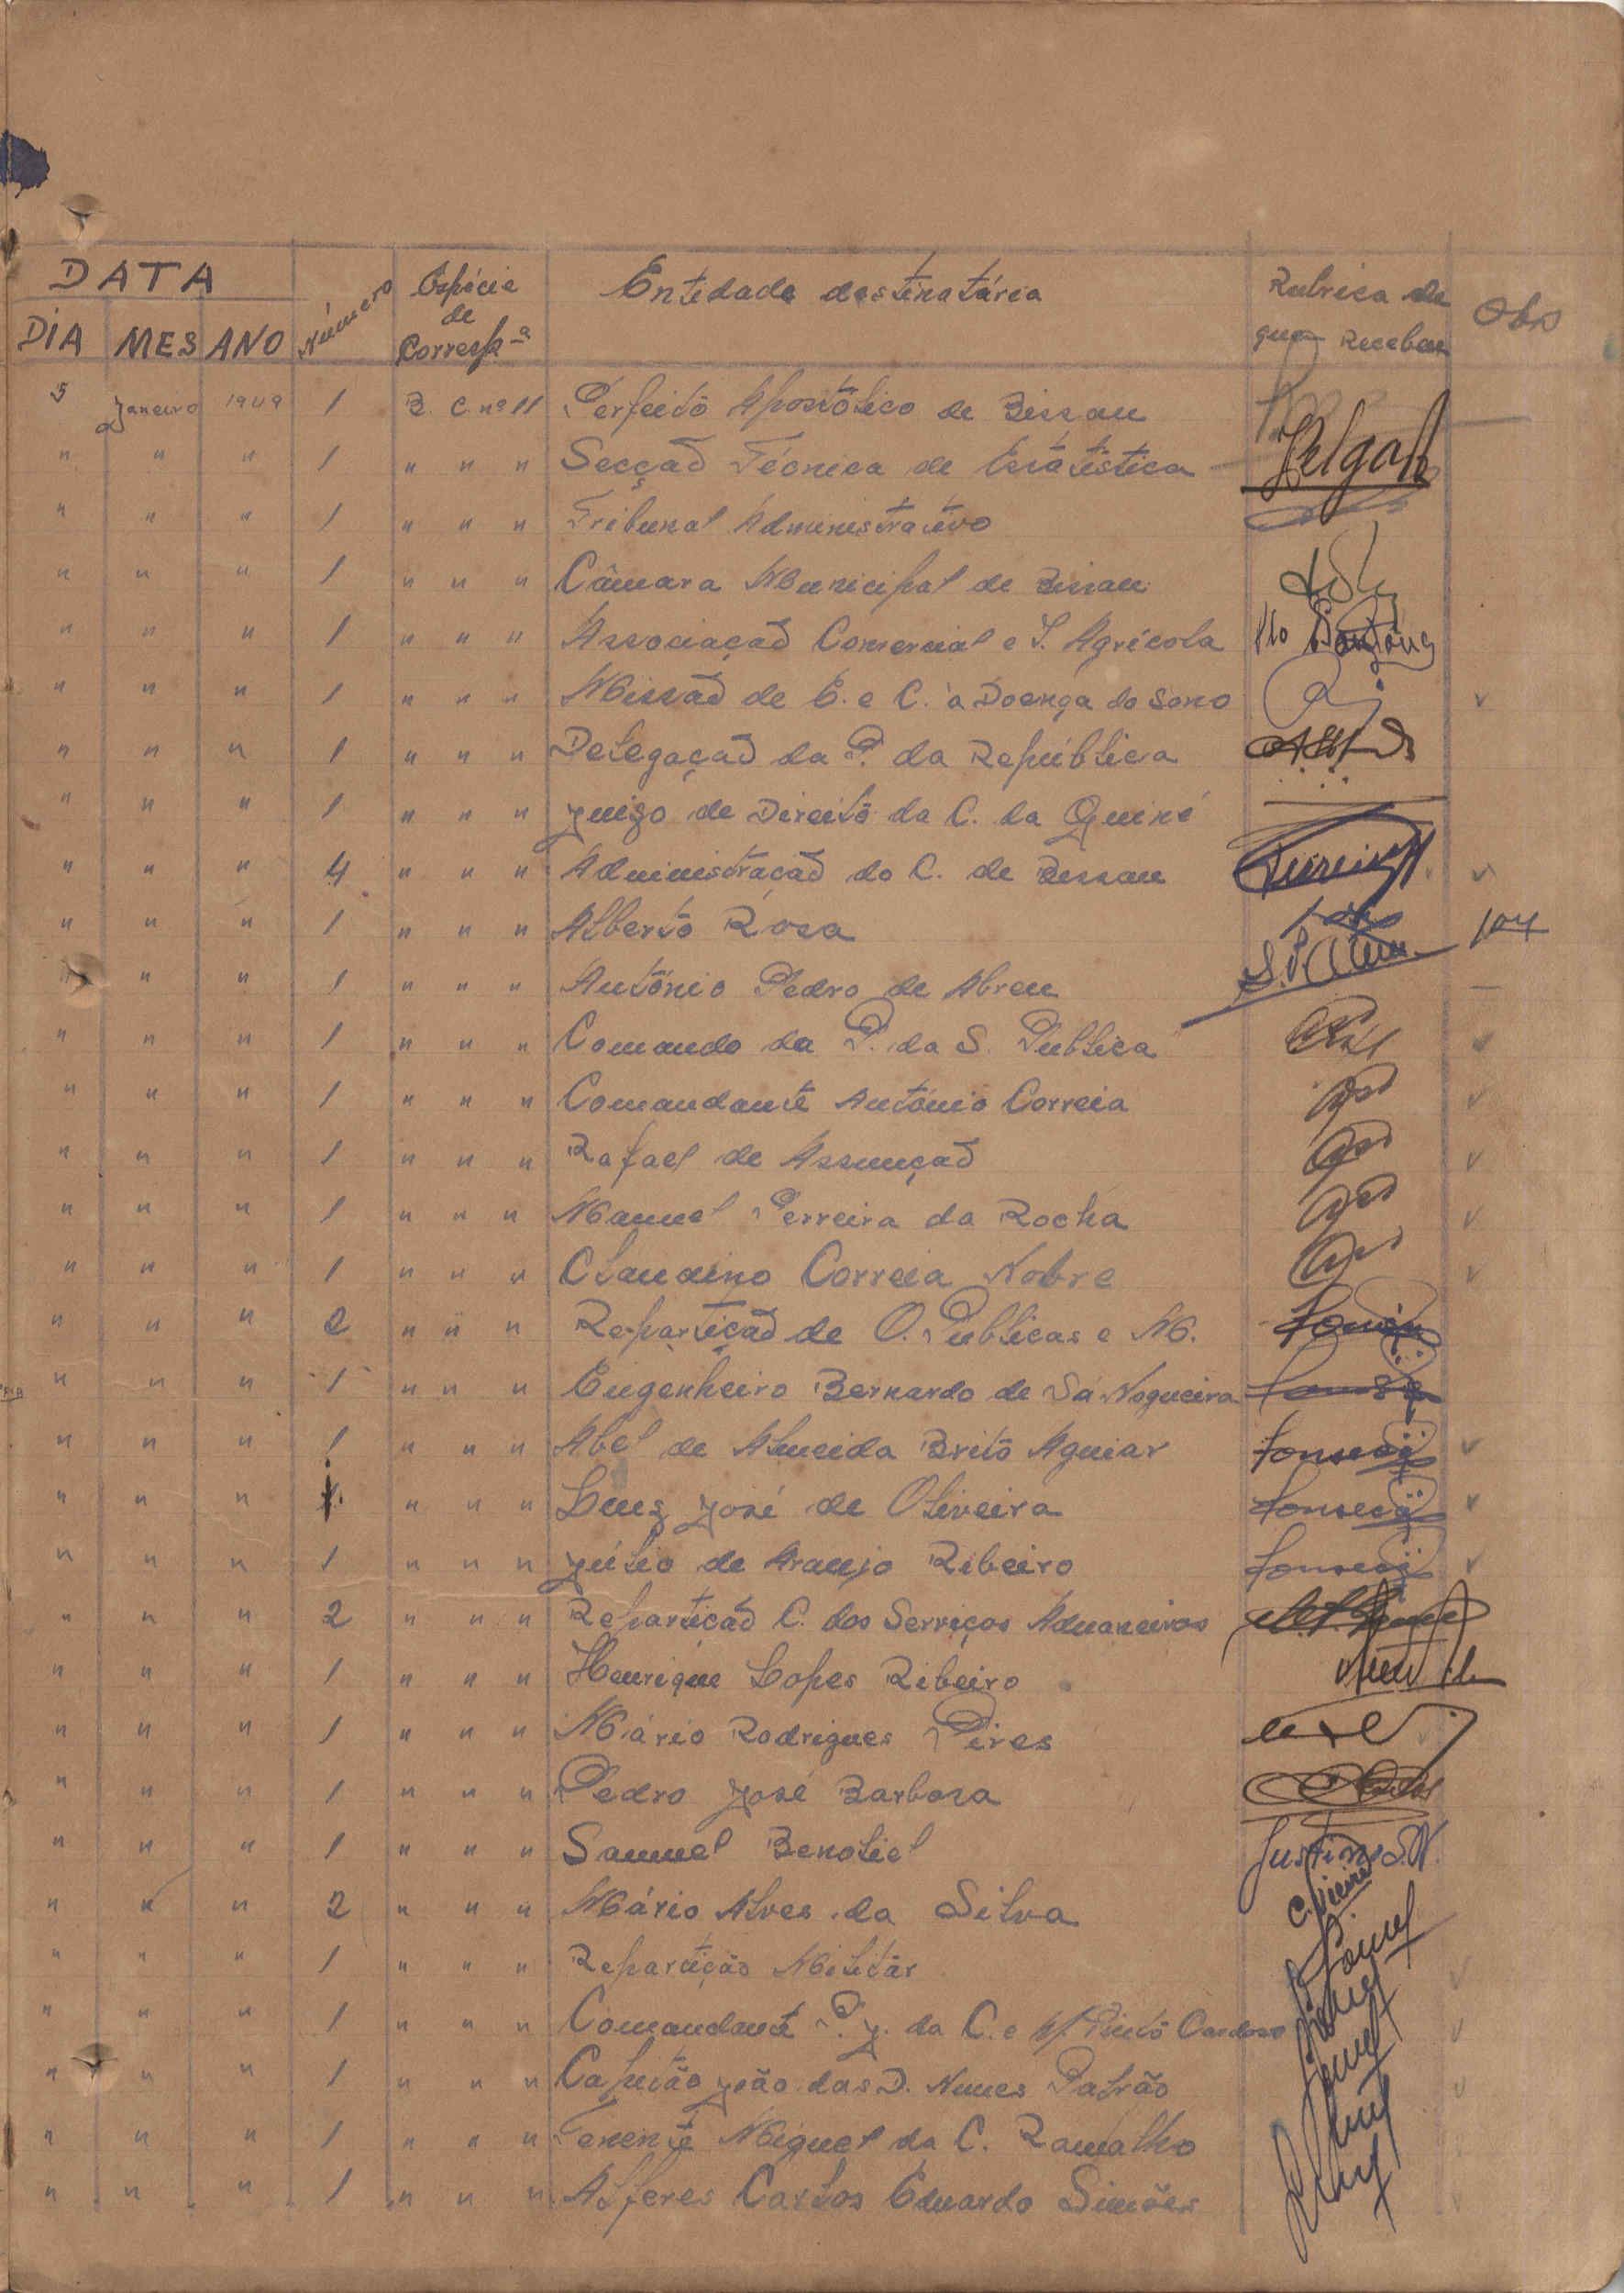 DATA Número Espécie de Correspª Entidade destinatária Rubrica de quem Recebeu Obs
DIA MES ANO
5 Janeiro 1949 1 B. C. nº 11 Perfeito Apostólico de Bissau
" " " 1 " " " Secção Técnica de Estatística
" " " 1 " " " Tribunal Administrativo
" " " 1 " " " Câmara Municipal de Bissau
" " " 1 " " " Associação Comercial e I. Agrícola
" " " 1 " " " Missão de E. e C. à Doença do Sono
" " " 1 " " " Delegação da P. da República
" " " 1 " " " Juizo de Direito da C. da Guiné
" " " 4 " " " Administração do C. de Bissau
" " " 1 " " " Alberto Rosa 104
" " " 1 " " " António Pedro de Abreu
" " " 1 " " " Comando da P. da S. Publica
" " " 1 " " " Comandante António Correia
" " " 1 " " " Rafael de Assunção
" " " 1 " " " Manuel Perreira da Rocha
" " " 1 " " " Claudino Correia Nobre
" " " 2 " " " Repartição de O. Publicas e M. Fonseca
" " " 1 " " " Engenheiro Bernardo de Sá Nogueira Fonseca
" " " 1 " " " Abel de Almeida Brito Aguiar Fonseca
" " " 1 " " " Luiz José de Oliveira Fonseca
" " " 1 " " " Júlio de Araujo Ribeiro Fonseca
" " " 2 " " " Repartição C. dos Serviços Aduaneiros
" " " 1 " " " Henrique Lopes Ribeiro
" " " 1 " " " Mário Rodrigues Pires
" " " 1 " " " Pedro José Barbosa
" " " 1 " " " Samuel Benoliel Justino S.N.
" " " 2 " " " Mário Alves da Silva C. Vieira
" " " 1 " " " Repartição Militar
" " " 1 " " " Comandante P. J. da C. e M. Pinto Cardoso
" " " 1 " " " Capitão João das D. Nunes Patrão
" " " 1 " " " Tenente Miguel da C. Ramalho
" " " 1 " " " Alferes Carlos Eduardo Simões